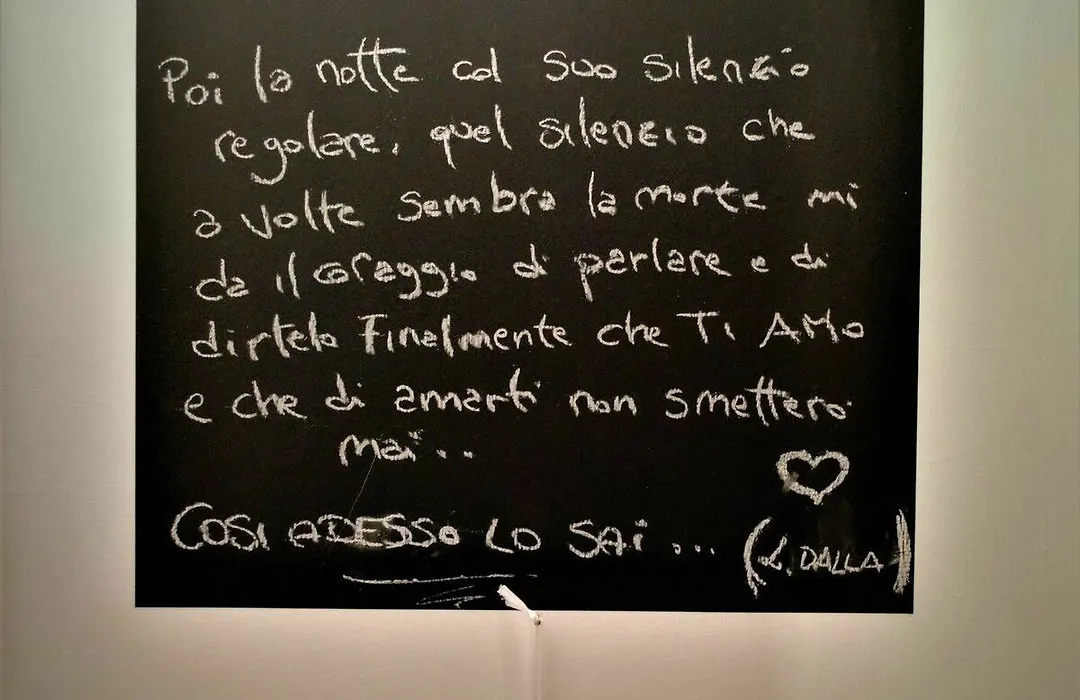 Poi la notte col suo silenzio
regolare, quel silenzio che
a volte sembra la morte mi
da il coraggio di parlare e di
dirtelo finalmente che TI AMO
e che di amarti non smettero
mai...
COSI ADESSO LO SAI ...
(L. DALLA)